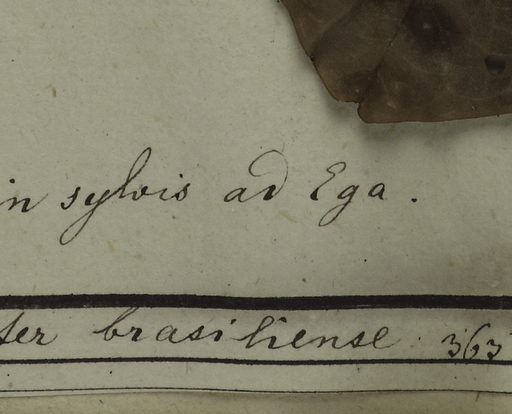 in sylvis ad Ega.
ter brasiliense. 363